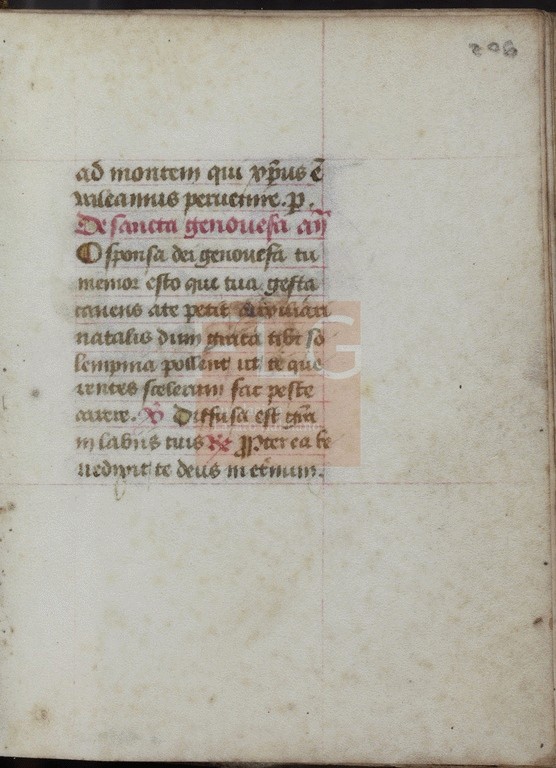 206
ad montem qui xp̄us ē
valeamus pervenire. p.
De sancta genovefa añ
O sponsa dei genovefa tu
memor esto qui tua gesta
canens a te petit
natalis dum grata tibi so
lempnia pollent ut te que
rentes scelerum fac peste
carere. ℣ Diffusa est gr̄a
in labiis tuis ℟ Propterea be
nedixit te deus in et̄num.
FLG